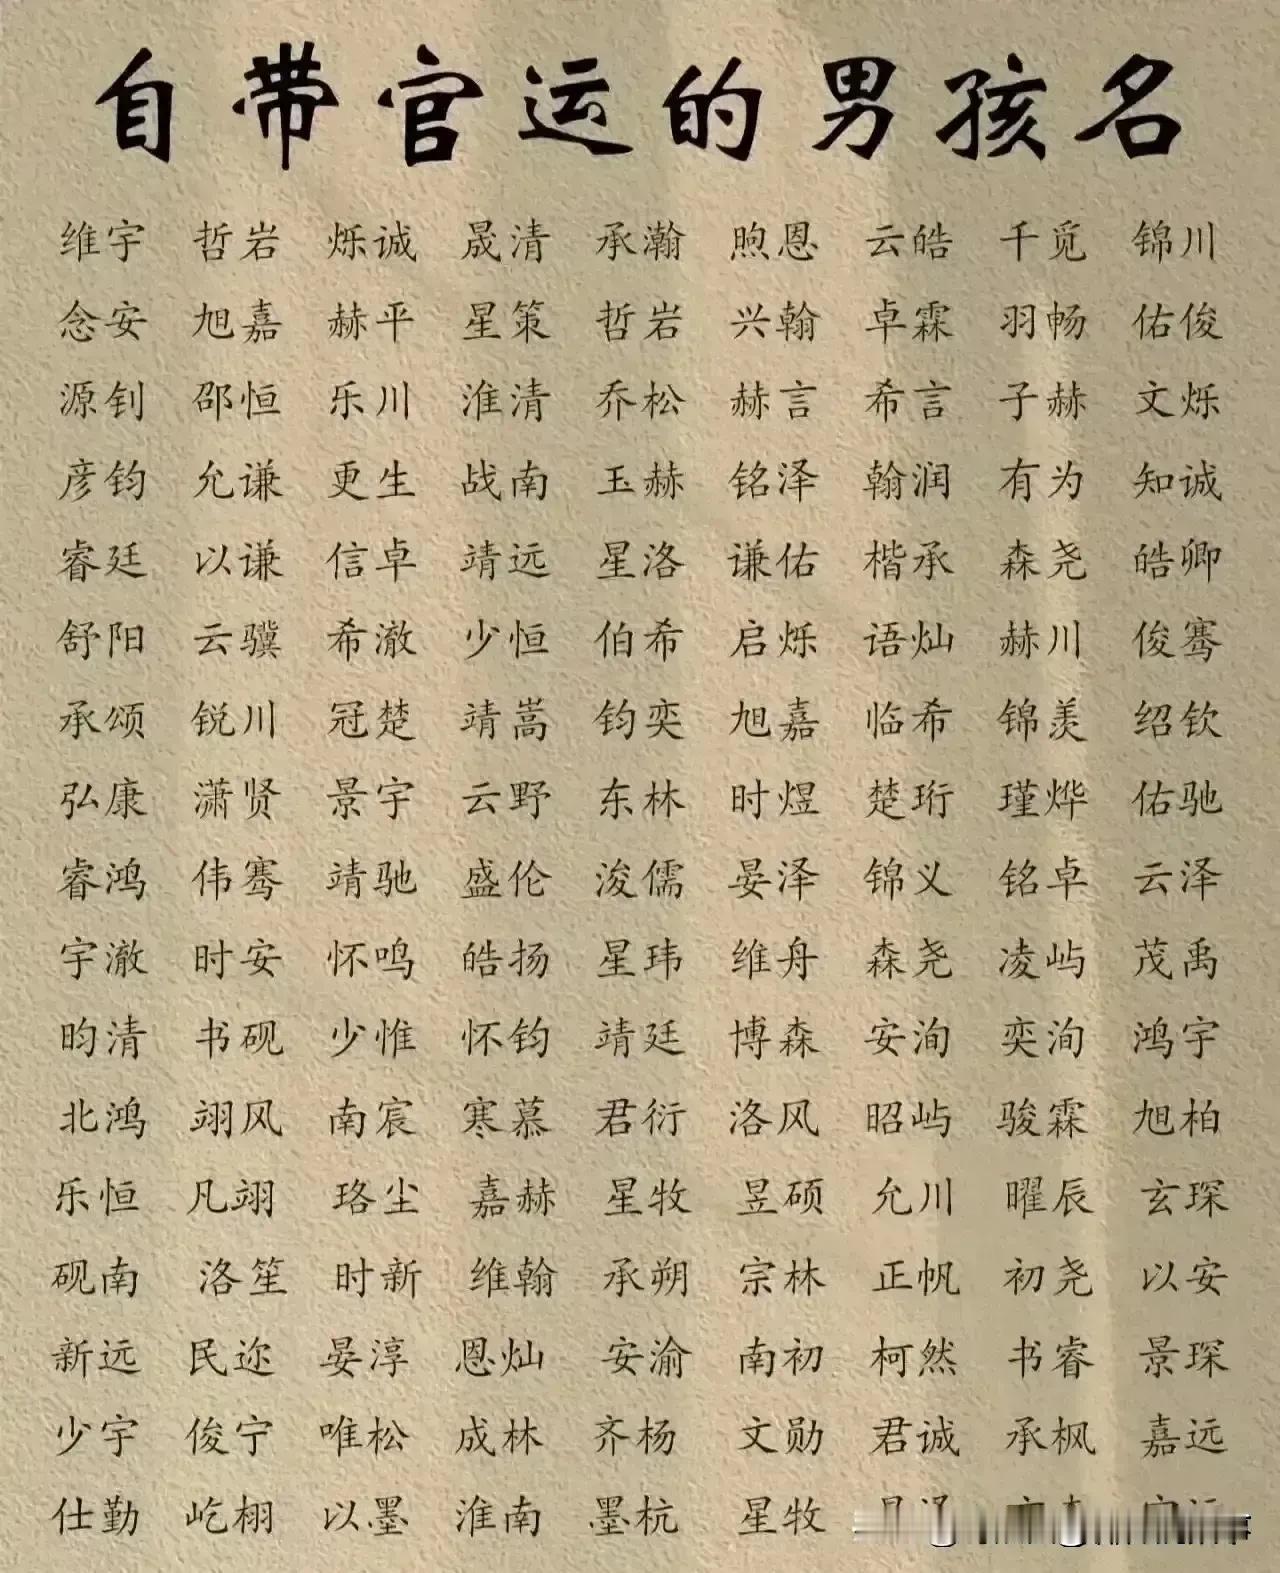 自带官运的男孩名
维宇 哲岩 烁诚 晟清 承瀚 煦恩 云皓 千觅 锦川
念安 旭嘉 赫平 星策 哲岩 兴翰 卓霖 羽畅 佑俊
源钊 邵恒 乐川 淮清 乔松 赫言 希言 子赫 文烁
彦钧 允谦 更生 战南 玉赫 铭泽 翰润 有为 知诚
睿廷 以谦 信卓 靖远 星洛 谦佑 楷承 森尧 皓卿
舒阳 云骥 希澈 少恒 伯希 启烁 语灿 赫川 俊骞
承颂 锐川 冠楚 靖嵩 钧奕 旭嘉 临希 锦羡 绍钦
弘康 潇贤 景宇 云野 东林 时煜 楚珩 瑾烨 佑驰
睿鸿 伟骞 靖驰 盛伦 浚儒 晏泽 锦义 铭卓 云泽
宇澈 时安 怀鸣 皓扬 星玮 维舟 森尧 凌屿 茂禹
昀清 书砚 少惟 怀钧 靖廷 博森 安洵 奕洵 鸿宇
北鸿 翊风 南宸 寒慕 君衍 洛风 昭屿 骏霖 旭柏
乐恒 凡翊 珞尘 嘉赫 星牧 昱硕 允川 曜辰 玄琛
砚南 洛笙 时新 维翰 承朔 宗林 正帆 初尧 以安
新远 民迩 晏淳 恩灿 安渝 南初 柯然 书睿 景琛
少宇 俊宁 唯松 成林 齐杨 文勋 君诚 承枫 嘉远
仕勤 屹栩 以墨 淮南 墨杭 星牧